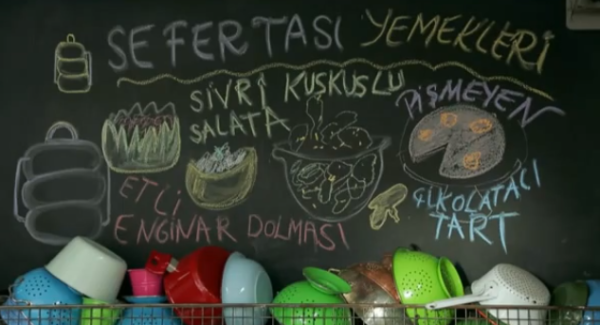 SEFERTASI YEMEKLERİ
SİVRİ KUSKUSLU
SALATA
PİŞMEYEN
ÇİKOLATALI
TART
ETLİ
ENGINAR DOLMASI